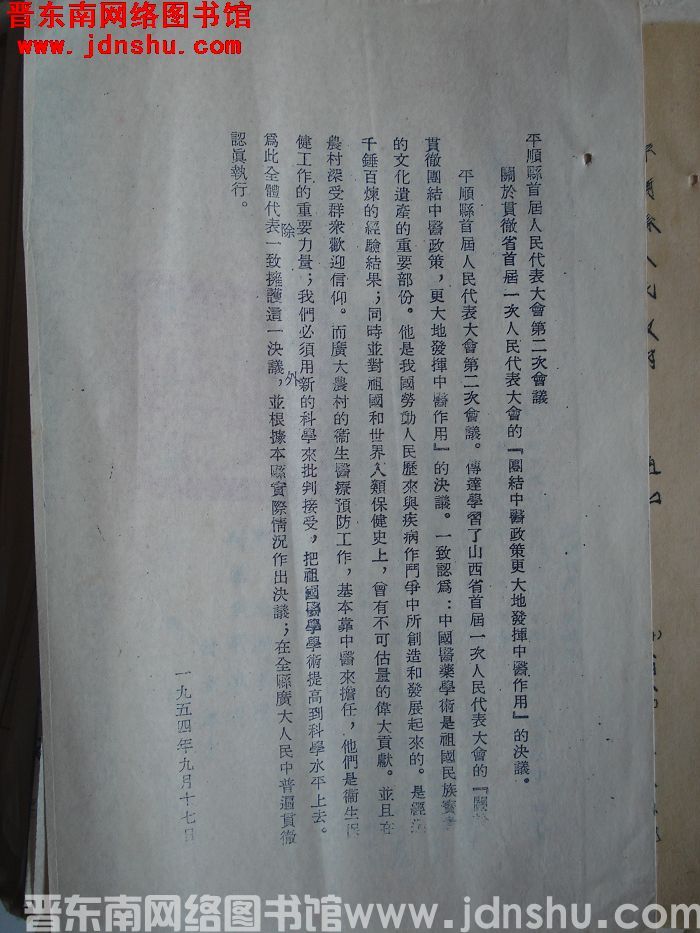 晋东南网络图书馆
www.jdnshu.com
平順縣首屆人民代表大會第二次會議
關於貫徹省首屆一次人民代表大會的『團結中醫政策更大地發揮中醫作用』的決議。
平順縣首屆人民代表大會第二次會議。傳達學習了山西省首屆一次人民代表大會的『關於
貫徹團結中醫政策，更大地發揮中醫作用』的決議。一致認爲：中國醫藥學術是祖國民族寶貴
的文化遺產的重要部份。他是我國勞動人民歷來與疾病作鬥爭中所創造和發展起來的。是經過
千錘百煉的經驗結果；同時並對祖國和世界人類保健史上，曾有不可估量的偉大貢獻。並且在
農村深受群衆歡迎信仰。而廣大農村的衞生醫療預防工作，基本靠中醫來擔任，他們是衞生保
健工作的重要力量；我們必須用新的科學來批判接受，把祖國醫學學術提高到科學水平上去。
爲此全體代表除一致擁護這一決議外，並根據本縣實際情況作出決議；在全縣廣大人民中普遍貫徹
認眞執行。
一九五四年九月十七日
晋东南网络图书馆www.jdnshu.com